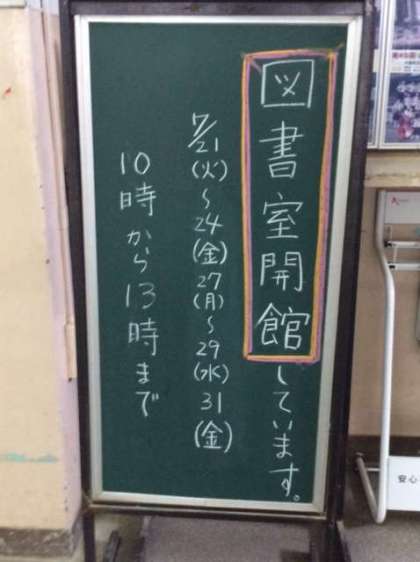 図書室開館しています。
7/21(火)〜24(金)27(月)〜29(水)31(金)
10時から13時まで
安心